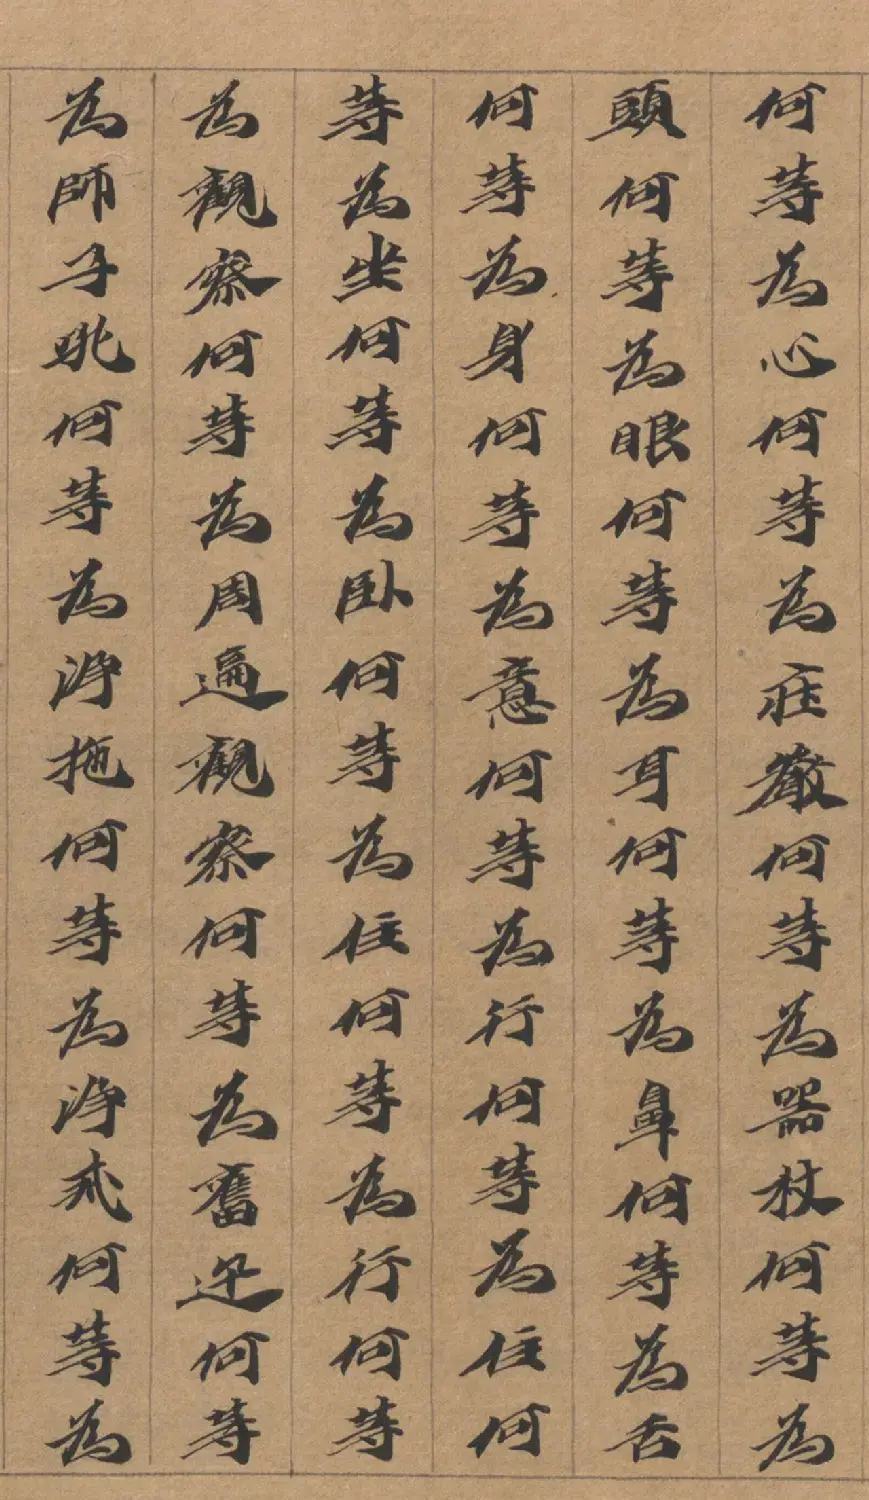 何等為心何等為莊嚴何等為器杖何等為
頭何等為眼何等為耳何等為鼻何等為舌
何等為身何等為意何等為行何等為住何
等為坐何等為卧何等為住何等為行何等
為觀察何等為周遍觀察何等為奮迅何等
為師子吼何等為淨施何等為淨戒何等為